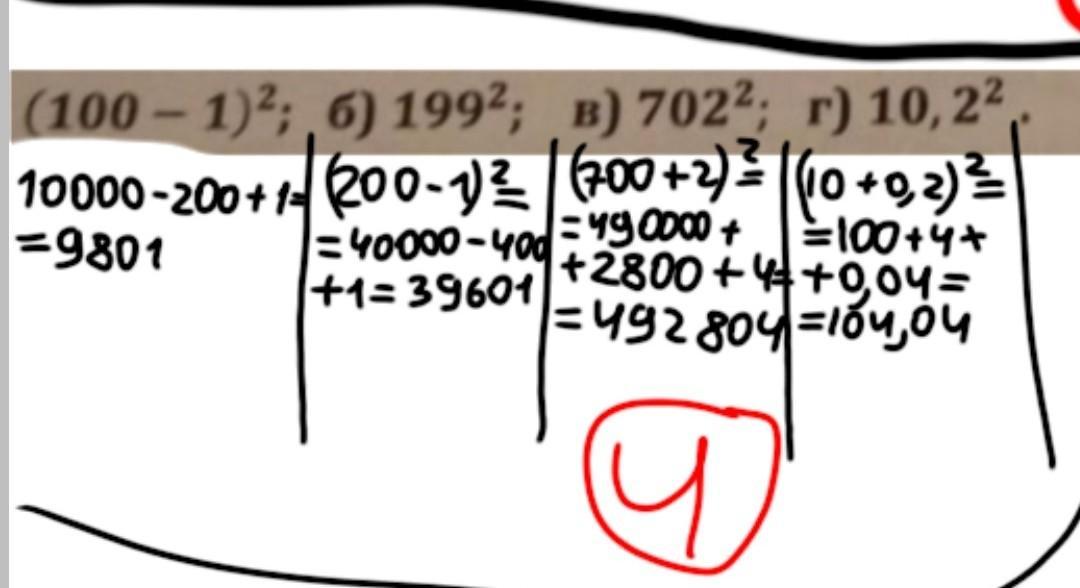 (100 – 1)²; б) 199²; в) 702²; г) 10,2².
10000-200+1=
=9801
(200-1)²=
=40000-400
+1=39601
(700+2)²=
=490000+
+2800+4=
=492804
(10+0,2)²=
=100+4+
+0,04=
=104,04
4